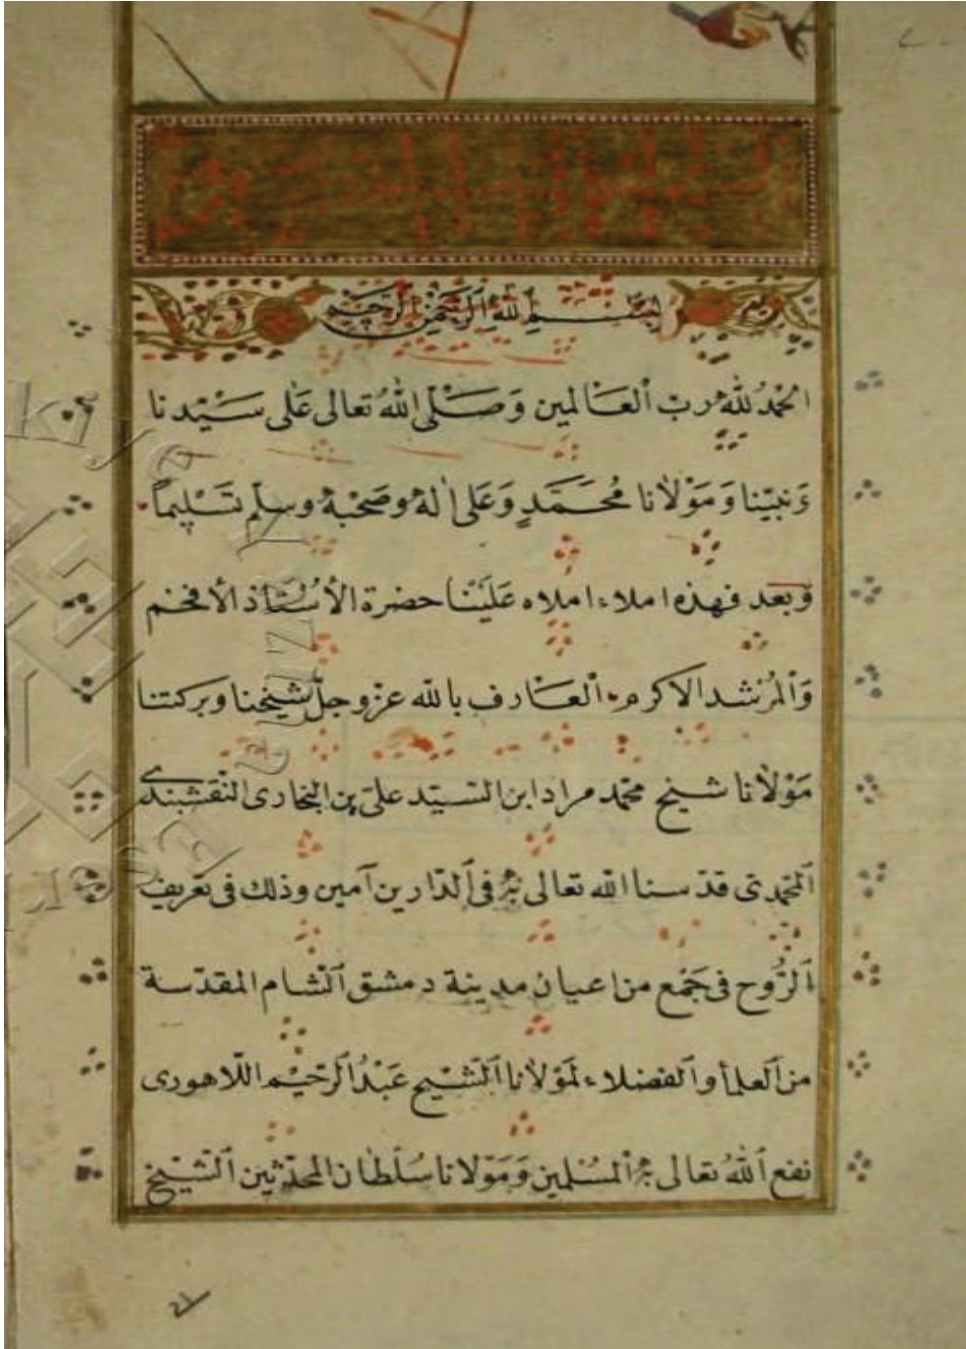 بِسْمِ اللهِ الرَّحْمٰنِ الرَّحِيْمِ
اَلْحَمْدُ لِلّٰهِ رَبّ الْعَالمين وَصَلّٰى اللهُ تعالى عَلٰى سَيّدنا
وَنبيّنا وَمَوْلانا مُحَمَّدٍ وَعَلى اٰلهِ وصَحْبهِ وسلّم تَسْلِيماً
وَبعد فهذه املاء املاه عَلَيْنا حضرة الأسْتاذ الأفخم
وَالمُرْشد الاكرم الْعَارف بالله عزّ وجلّ شيخنا وبركتنا
مَوْلانا شيخ محمّد مراد ابن السيّد علىّ بن البخارى النّقشبندى
المحمّدى قدّسنا الله تعالى به فى الدّارين آمين وذلك فى تعريف
الرُّوح فى جَمْع من اعيان مدينة دمشق الشام المقدّسة
من العلمأ والفضلاء لمَوْلانا الشّيخ عَبْدُ الرّحيْم اللّاهورى
نفع اللهُ تعالى به الْمسْلمين وَمَوْلانا سُلْطان المحدّثين الشّيْخ